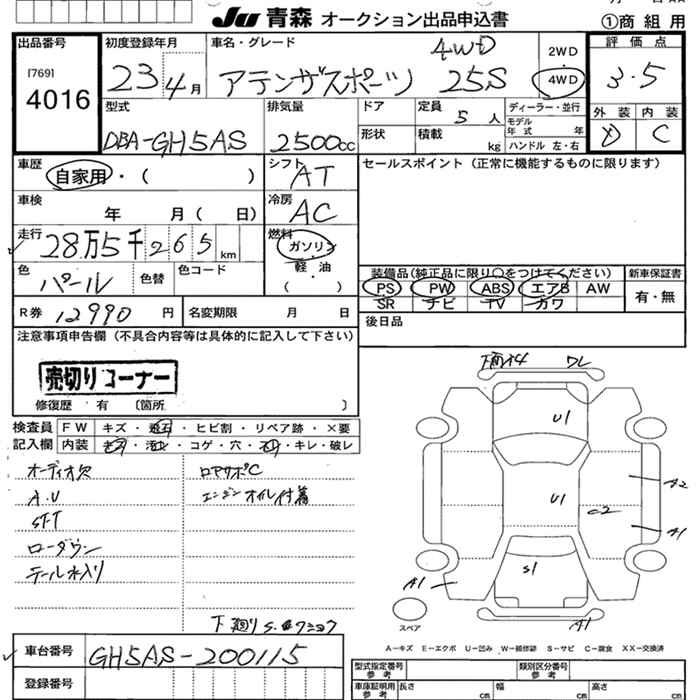 JU 青森 オークション出品申込書
①商 組 用
出品番号
[769]
4016
初度登録年月
23年4月
車名・グレード
アテンザスポーツ 25S 4WD
2WD
4WD
評価点
3.5
外装 内装
D C
型式
DBA-GH5AS
排気量
2500cc
ドア
形状
定員
5人
積載
kg
ディーラー・並行
モデル年式 年
ハンドル 左・右
車歴
自家用・( )
シフト
AT
セールスポイント(正常に機能するものに限ります)
車検
年 月( 日)
冷房
AC
走行
28万5千265km
燃料
ガソリン
軽・油
( )
色
パール
色替
色コード
装備品(純正品に限り○をつけてください)
PS PW ABS エアB AW
SR ナビ TV カワ
新車保証書
有・無
R券 12990円
名変期限 月 日
後日品
注意事項申告欄(不具合内容等は具体的に記入して下さい)
売切りコーナー
修復歴 有 〔箇所 〕
検査員記入欄
FW キズ・飛石・ヒビ割・リペア跡・×要
内装 コゲ・穴・キレ・破レ
オーディオ欠
A.U
ローダウン
テール水入り
ロアサポC
エンジンオイル付着
下廻りS.
車台番号
GH5AS-200115
登録番号
U1
U1
S1
C2
A2
A1
A1
A1
スペア
A-キズ E-エクボ U-凹み W-補修跡 S-サビ C-腐食 XX-交換済
型式指定番号
参考
類別区分番号
参考
車庫証明用
参考
長さ cm
幅 cm
高さ cm